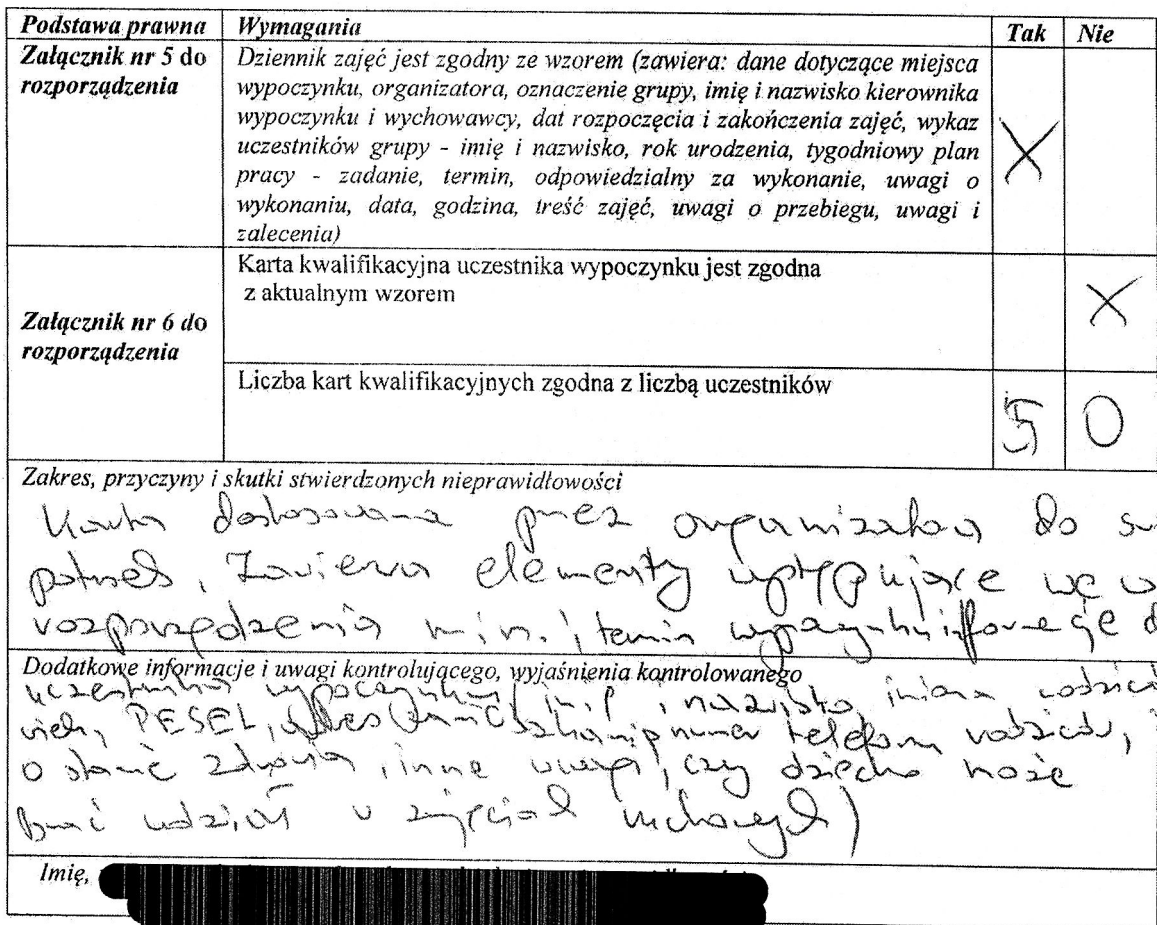 Podstawa prawna Wymagania Tak Nie
Załącznik nr 5 do Dziennik zajęć jest zgodny ze wzorem (zawiera: dane dotyczące miejsca
rozporządzenia wypoczynku, organizatora, oznaczenie grupy, imię i nazwisko kierownika
wypoczynku i wychowawcy, dat rozpoczęcia i zakończenia zajęć, wykaz
uczestników grupy - imię i nazwisko, rok urodzenia, tygodniowy plan
pracy - zadanie, termin, odpowiedzialny za wykonanie, uwagi o
wykonaniu, data, godzina, treść zajęć, uwagi o przebiegu, uwagi i
zalecenia)
X
Załącznik nr 6 do
rozporządzenia
Karta kwalifikacyjna uczestnika wypoczynku jest zgodna
z aktualnym wzorem
X
Liczba kart kwalifikacyjnych zgodna z liczbą uczestników
5 0
Zakres, przyczyny i skutki stwierdzonych nieprawidłowości
Karta dostosowana przez organizatora do
potrzeb, Zawiera elementy występujące we
rozporządzenia m.in., termin wypoczynku, informacje
Dodatkowe informacje i uwagi kontrolującego, wyjaśnienia kontrolowanego
uczestnika wypoczynku (imię i nazwisko, imiona
wiek, PESEL, adres zamieszkania, numer telefonu rodziców,
o stanie zdrowia, inne uwagi, czy dziecko może
brać udział w zajęciach ruchowych)
Imię,